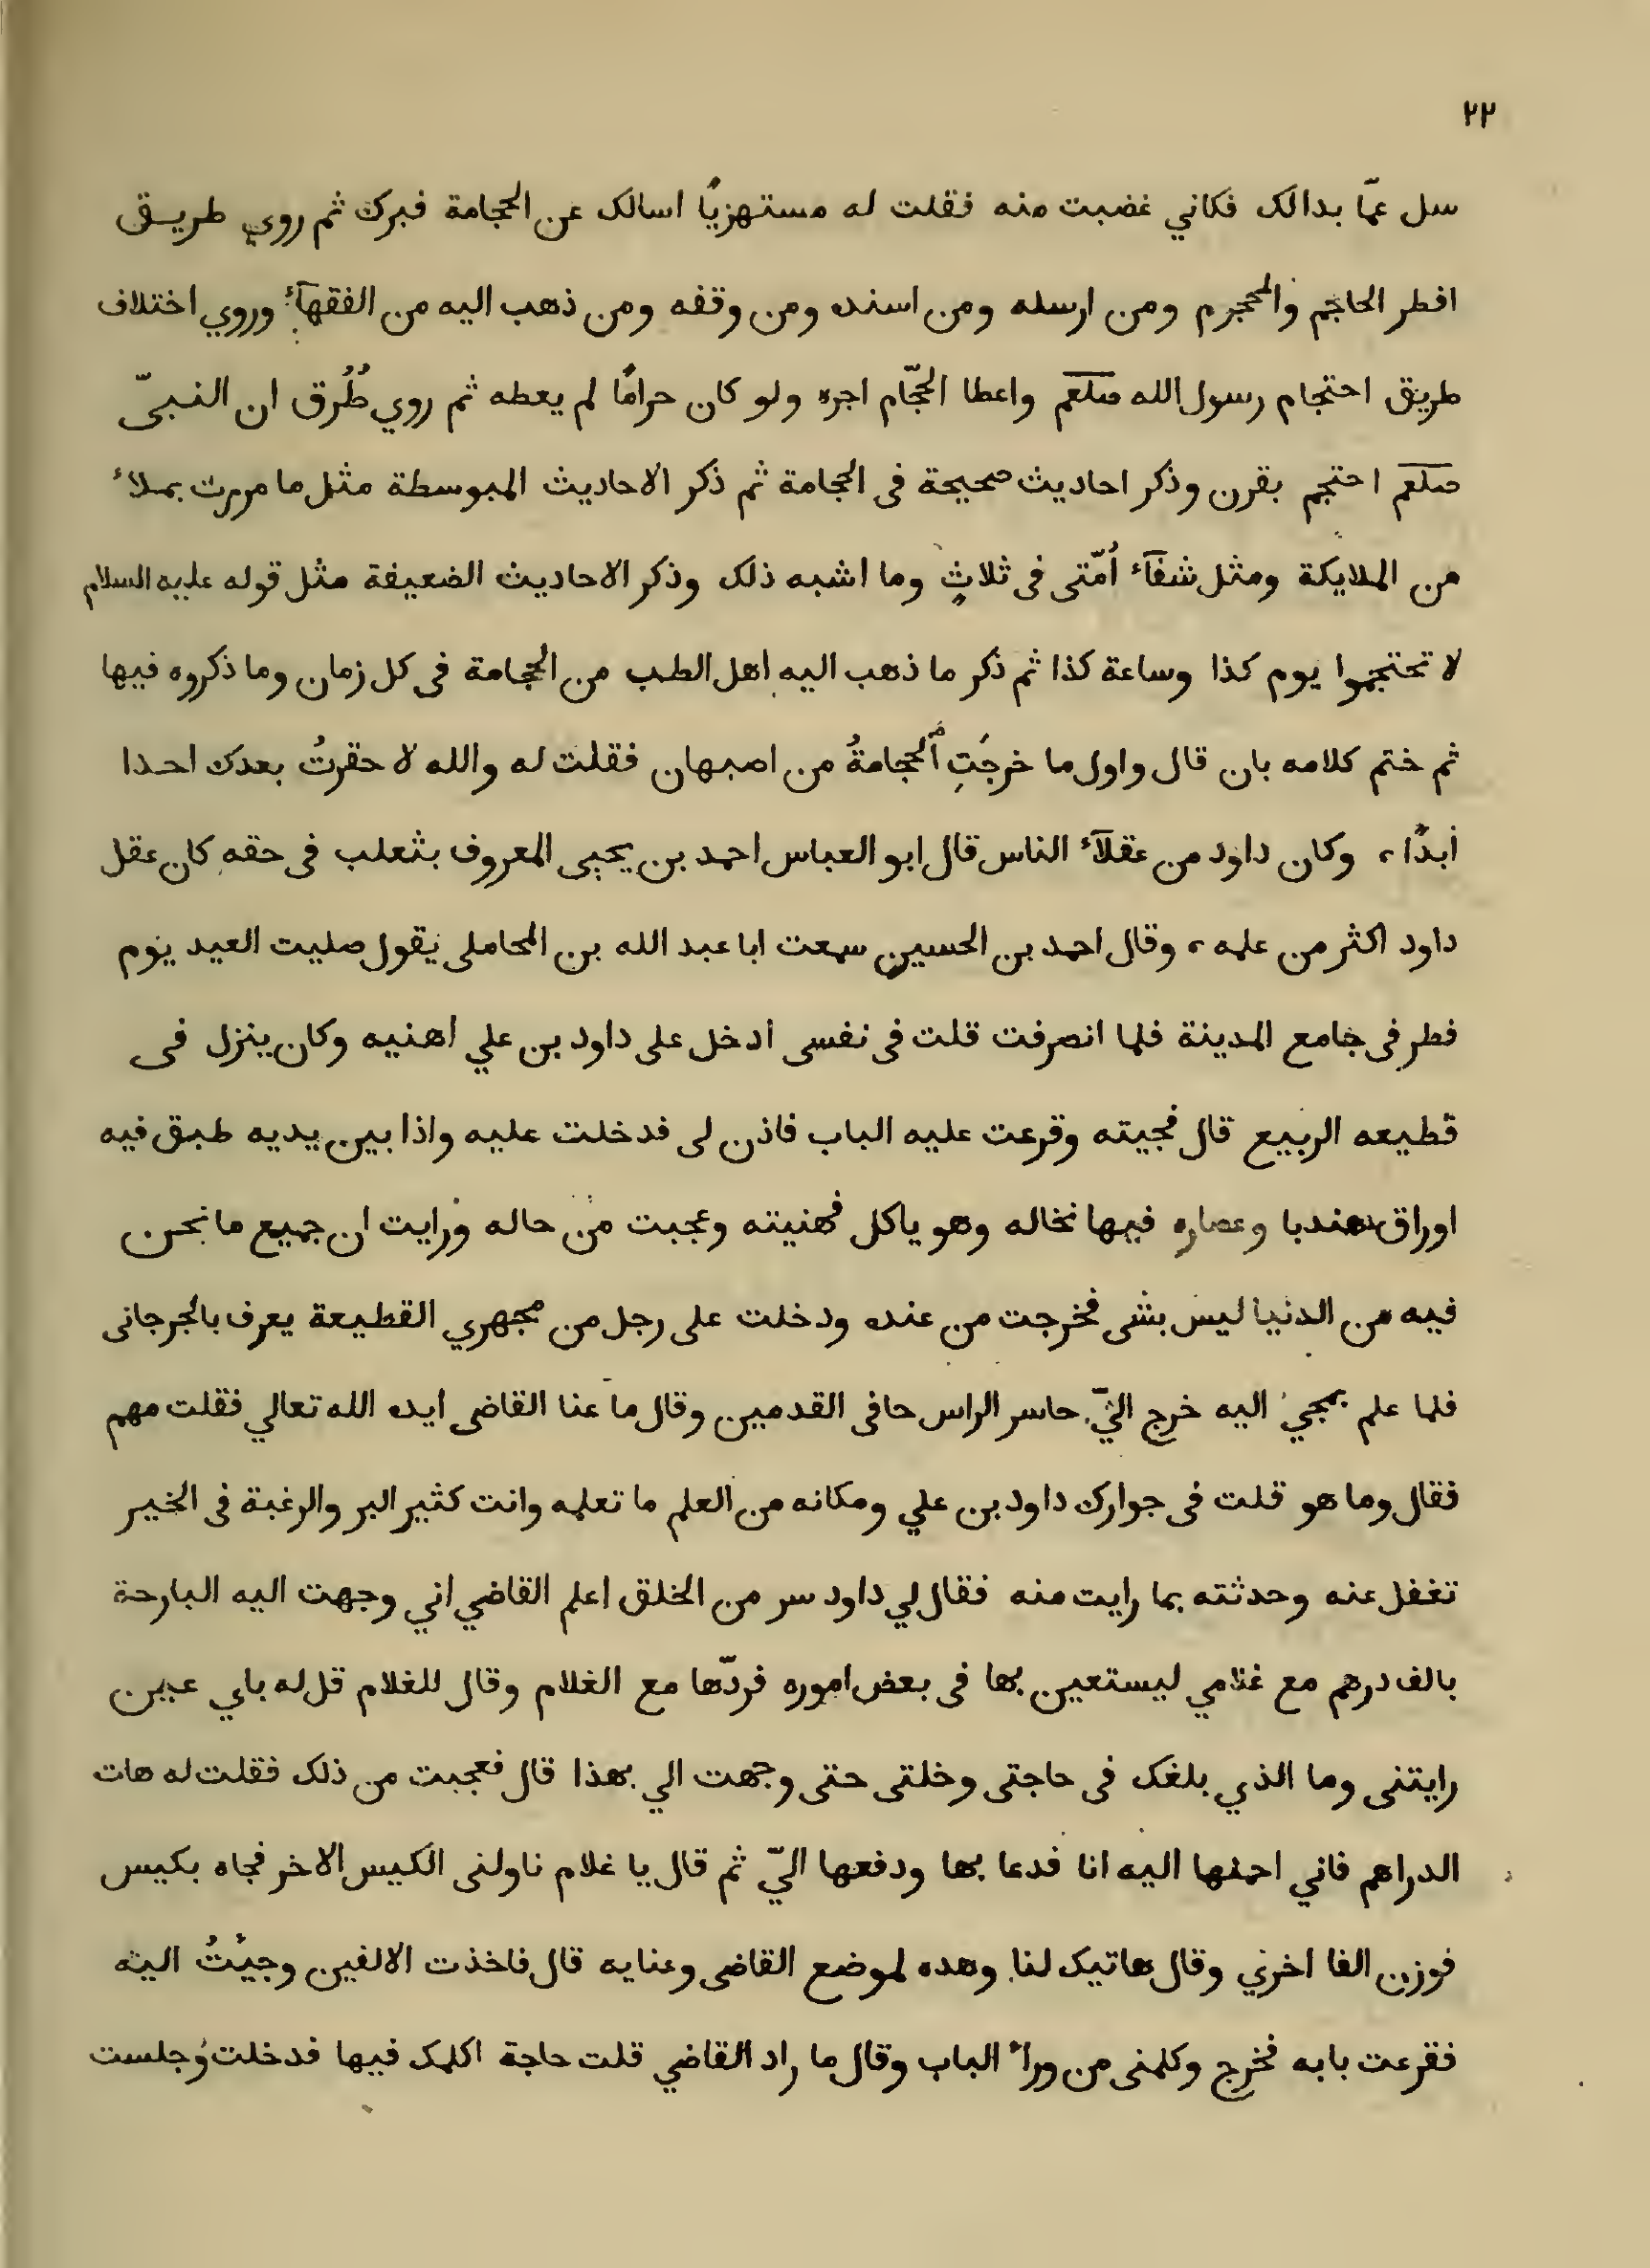 ٢٢
سل عمّا بدالك فكاني غضبت منه فقلت له مستهزيًا اسالك عن الحجامة فبرك ثم روي طريق
افطر الحاجم والمحجرم ومن ارسله ومن اسنده ومن وقفه ومن ذهب اليه من الفقهآء وروي اختلاف
طريق احتجام رسول الله صلعم واعطا الحجّام اجره ولو كان حرامًا لم يعطه ثم روي طُرق ان النبيّ
صلعم احتجم بقرن وذكر احاديث صحيحة فى الحجامة ثم ذكر الاحاديث المبوسطة مثل ما مررت بملاء
من الملايكة ومثل شفآء أُمّتى فى ثلاثٍ وما اشبه ذلك وذكر الاحاديث الضعيفة مثل قوله عليه السلام
لا تحتجموا يوم كذا وساعة كذا ثم ذكر ما ذهب اليه اهل الطب من الحجامة فى كل زمان وما ذكروه فيها
ثم ختم كلامه بان قال واول ما خرجَتِ الحجامةُ من اصبهان فقلت له والله لا حقرتُ بعدك احدا
أبدًا، وكان داود من عقلآء الناس قال ابو العباس احمد بن يحيى المعروف بثعلب فى حقه كان عقل
داود اكثر من علمه، وقال احمد بن الحسين سمعت ابا عبد الله بن المحاملى يقول صليت العيد يوم
فطر فى جامع المدينة فلما انصرفت قلت فى نفسى ادخل على داود بن علي اهنيه وكان ينزل فى
قطيعه الربيع قال فجيته وقرعت عليه الباب فاذن لى فدخلت عليه واذا بين يديه طبق فيه
اوراق هندبا وعصاره فيها نخاله وهو ياكل فهنيته وعجبت من حاله ورايت ان جميع ما نحن
فيه من الدنيا ليس بشى فخرجت من عنده ودخلت على رجل من مجهري القطيعة يعرف بالجرجانى
فلما علم بمجيء اليه خرج اليّ حاسر الراس حافى القدمين وقال ما عنا القاضى ايده الله تعالي فقلت مهم
فقال وما هو قلت فى جوارك داود بن علي ومكانه من العلم ما تعلمه وانت كثير البر والرغبة فى الخير
تغفل عنه وحدثته بما رايت منه فقال لي داود سر من الخلق اعلم القاضي اني وجهت اليه البارحة
بالف درهم مع غلامي ليستعين بها فى بعض اموره فردّها مع الغلام وقال للغلام قل له باي عين
رايتنى وما الذي بلغك فى حاجتى وخلتى حتى وجهت الي بهذا قال فعجبت من ذلك فقلت له هات
الدراهم فاني احملها اليه انا فدعا بها ودفعها اليّ ثم قال يا غلام ناولنى الكيس الاخر فجاه بكيس
فوزن الفا اخري وقال هاتيك لنا وهده لموضع القاضى وعنايه قال فاخذت الالفين وجيْتُ اليه
فقرعت بابه فخرج وكلمنى من ورآء الباب وقال ما راد القاضي قلت حاجة اكلمك فيها فدخلت وجلست